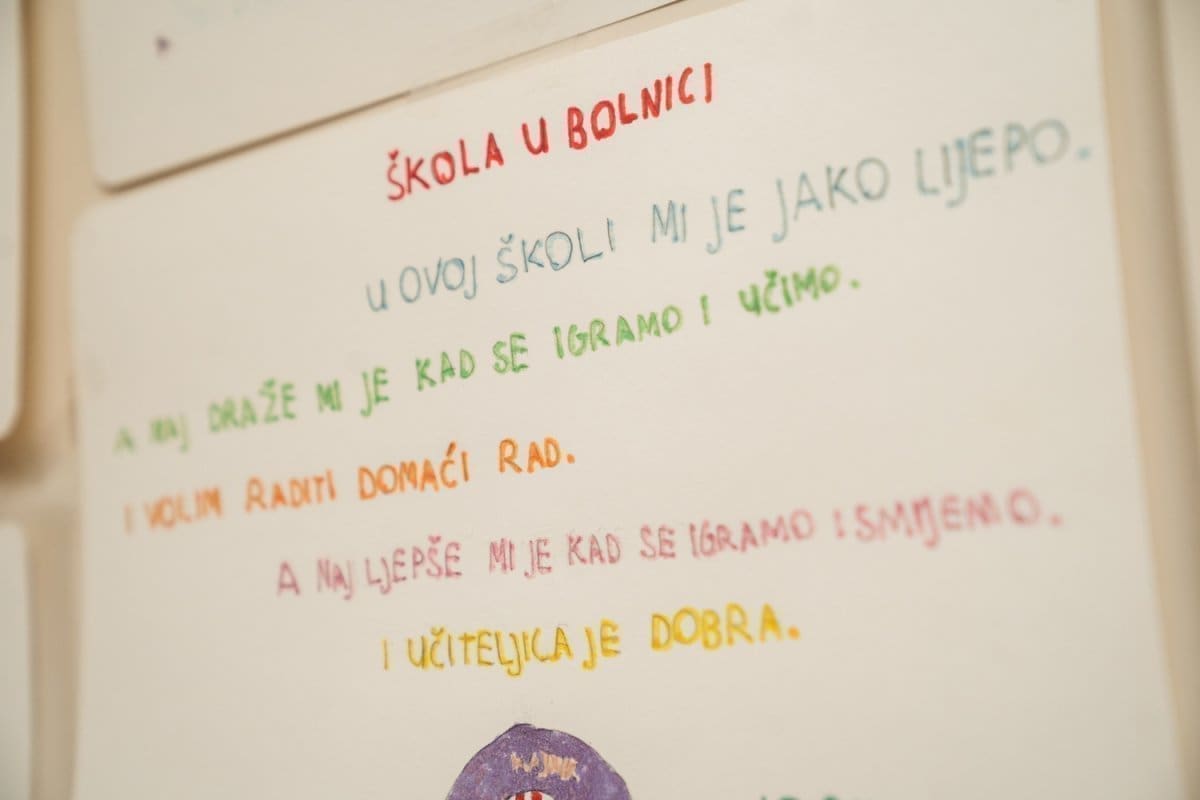 ŠKOLA U BOLNICI
U OVOJ ŠKOLI MI JE JAKO LIJEPO.
A NAJ DRAŽE MI JE KAD SE IGRAMO I UČIMO.
I VOLIM RADITI DOMAĆI RAD.
A NAJ LJEPŠE MI JE KAD SE IGRAMO I SMIJEMO.
I UČITELJICA JE DOBRA.